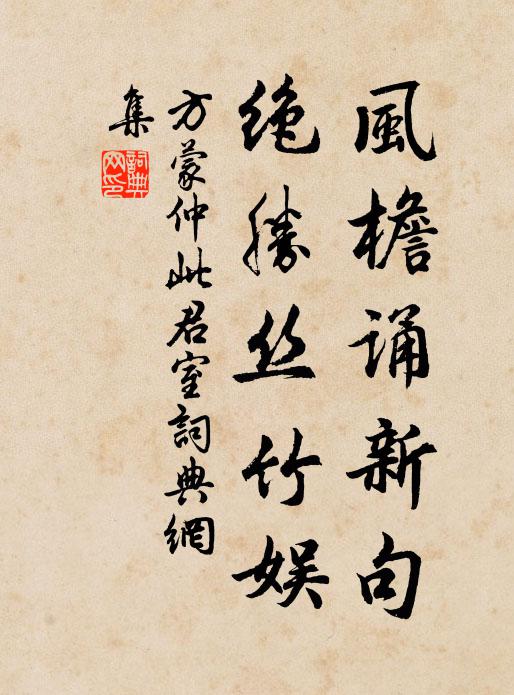 風檐诵新句
绝勝丝竹娱
方蒙仲此君室詞典網
集
詞典网印